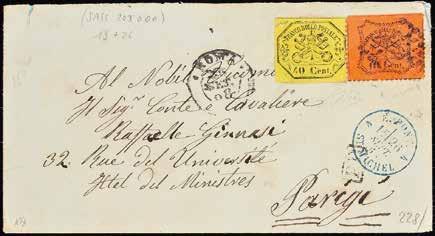 (SASS 208.000)
19 + 26
ROMA
68
FRANCO BOLLO POSTALE
40 Cent.
Cent.
Al Nobil Uomo
Il Sigr Conte e Cavaliere
Raffaelle Ginnasi
32 Rue de l'Université
Htel del Ministres
Parigi
ST MICHEL
228/